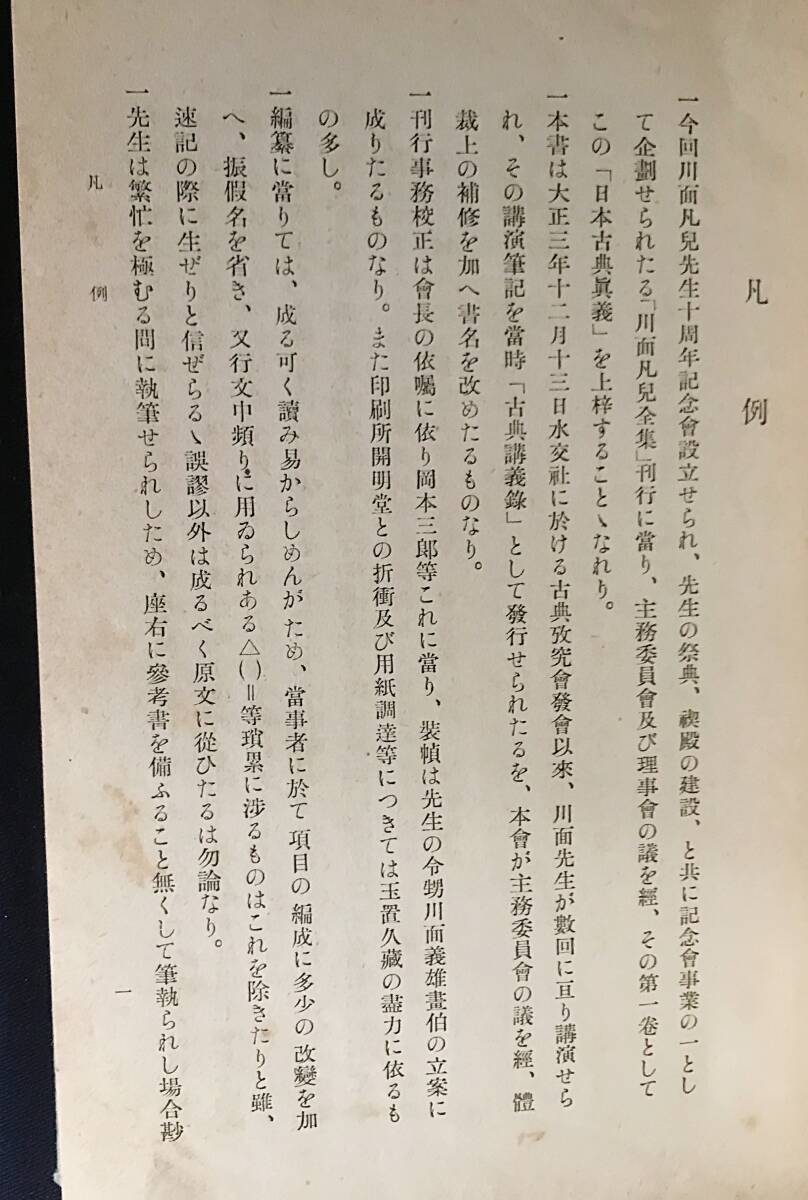 凡例
一今回川面凡兒先生十周年記念會設立せられ、先生の祭典、禊殿の建設、と共に記念會事業の一とし
て企劃せられたる「川面凡兒全集」刊行に當り、主務委員會及び理事會の議を經、その第一卷として
この「日本古典眞義」を上梓することゝなれり。
一本書は大正三年十二月十三日水交社に於ける古典攷究會發會以來、川面先生が數回に亘り講演せら
れ、その講演筆記を當時「古典講義錄」として發行せられたるを、本會が主務委員會の議を經、體
裁上の補修を加へ書名を改めたるものなり。
一刊行事務校正は會長の依囑に依り岡本三郎等これに當り、裝幀は先生の令甥川面義雄畫伯の立案に
成りたるものなり。また印刷所開明堂との折衝及び用紙調達等につきては玉置久藏の盡力に依るも
の多し。
一編纂に當りては、成る可く讀み易からしめんがため、當事者に於て項目の編成に多少の改變を加
へ、振假名を省き、又行文中頻りに用ゐられある△()॥等瑣累に涉るものはこれを除きたりと雖、
速記の際に生ぜりと信ぜらるゝ誤謬以外は成るべく原文に從ひたるは勿論なり。
一先生は繁忙を極むる間に執筆せられしため、座右に參考書を備ふること無くして筆執られし場合尠
凡例
一